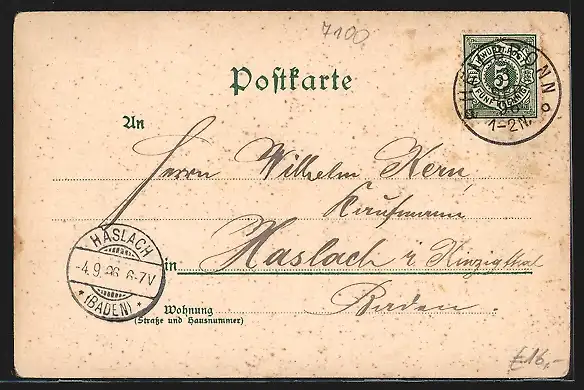 7100
Postkarte
K. WÜRTT. POST
5
FÜNF PFENNIG
HEILBRONN
1-2N.
An
Herrn Wilhelm Kern,
Kaufmann
HASLACH
-4.9.96 6-7V
* (BADEN) *
in Haslach i Kinzigthal
Baden.
Wohnung
(Straße und Hausnummer)
£16,-